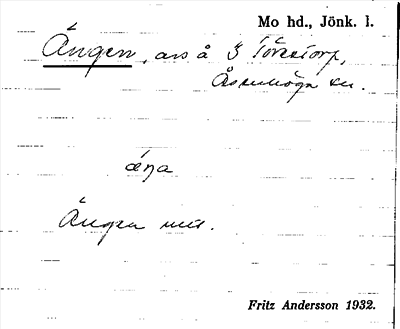 Mo hd., Jönk. l.
Ängen, avs å 3 Torestorp,
Åsenhöga sn.
äŋa
Ängen mtr.
Fritz Andersson 1932.